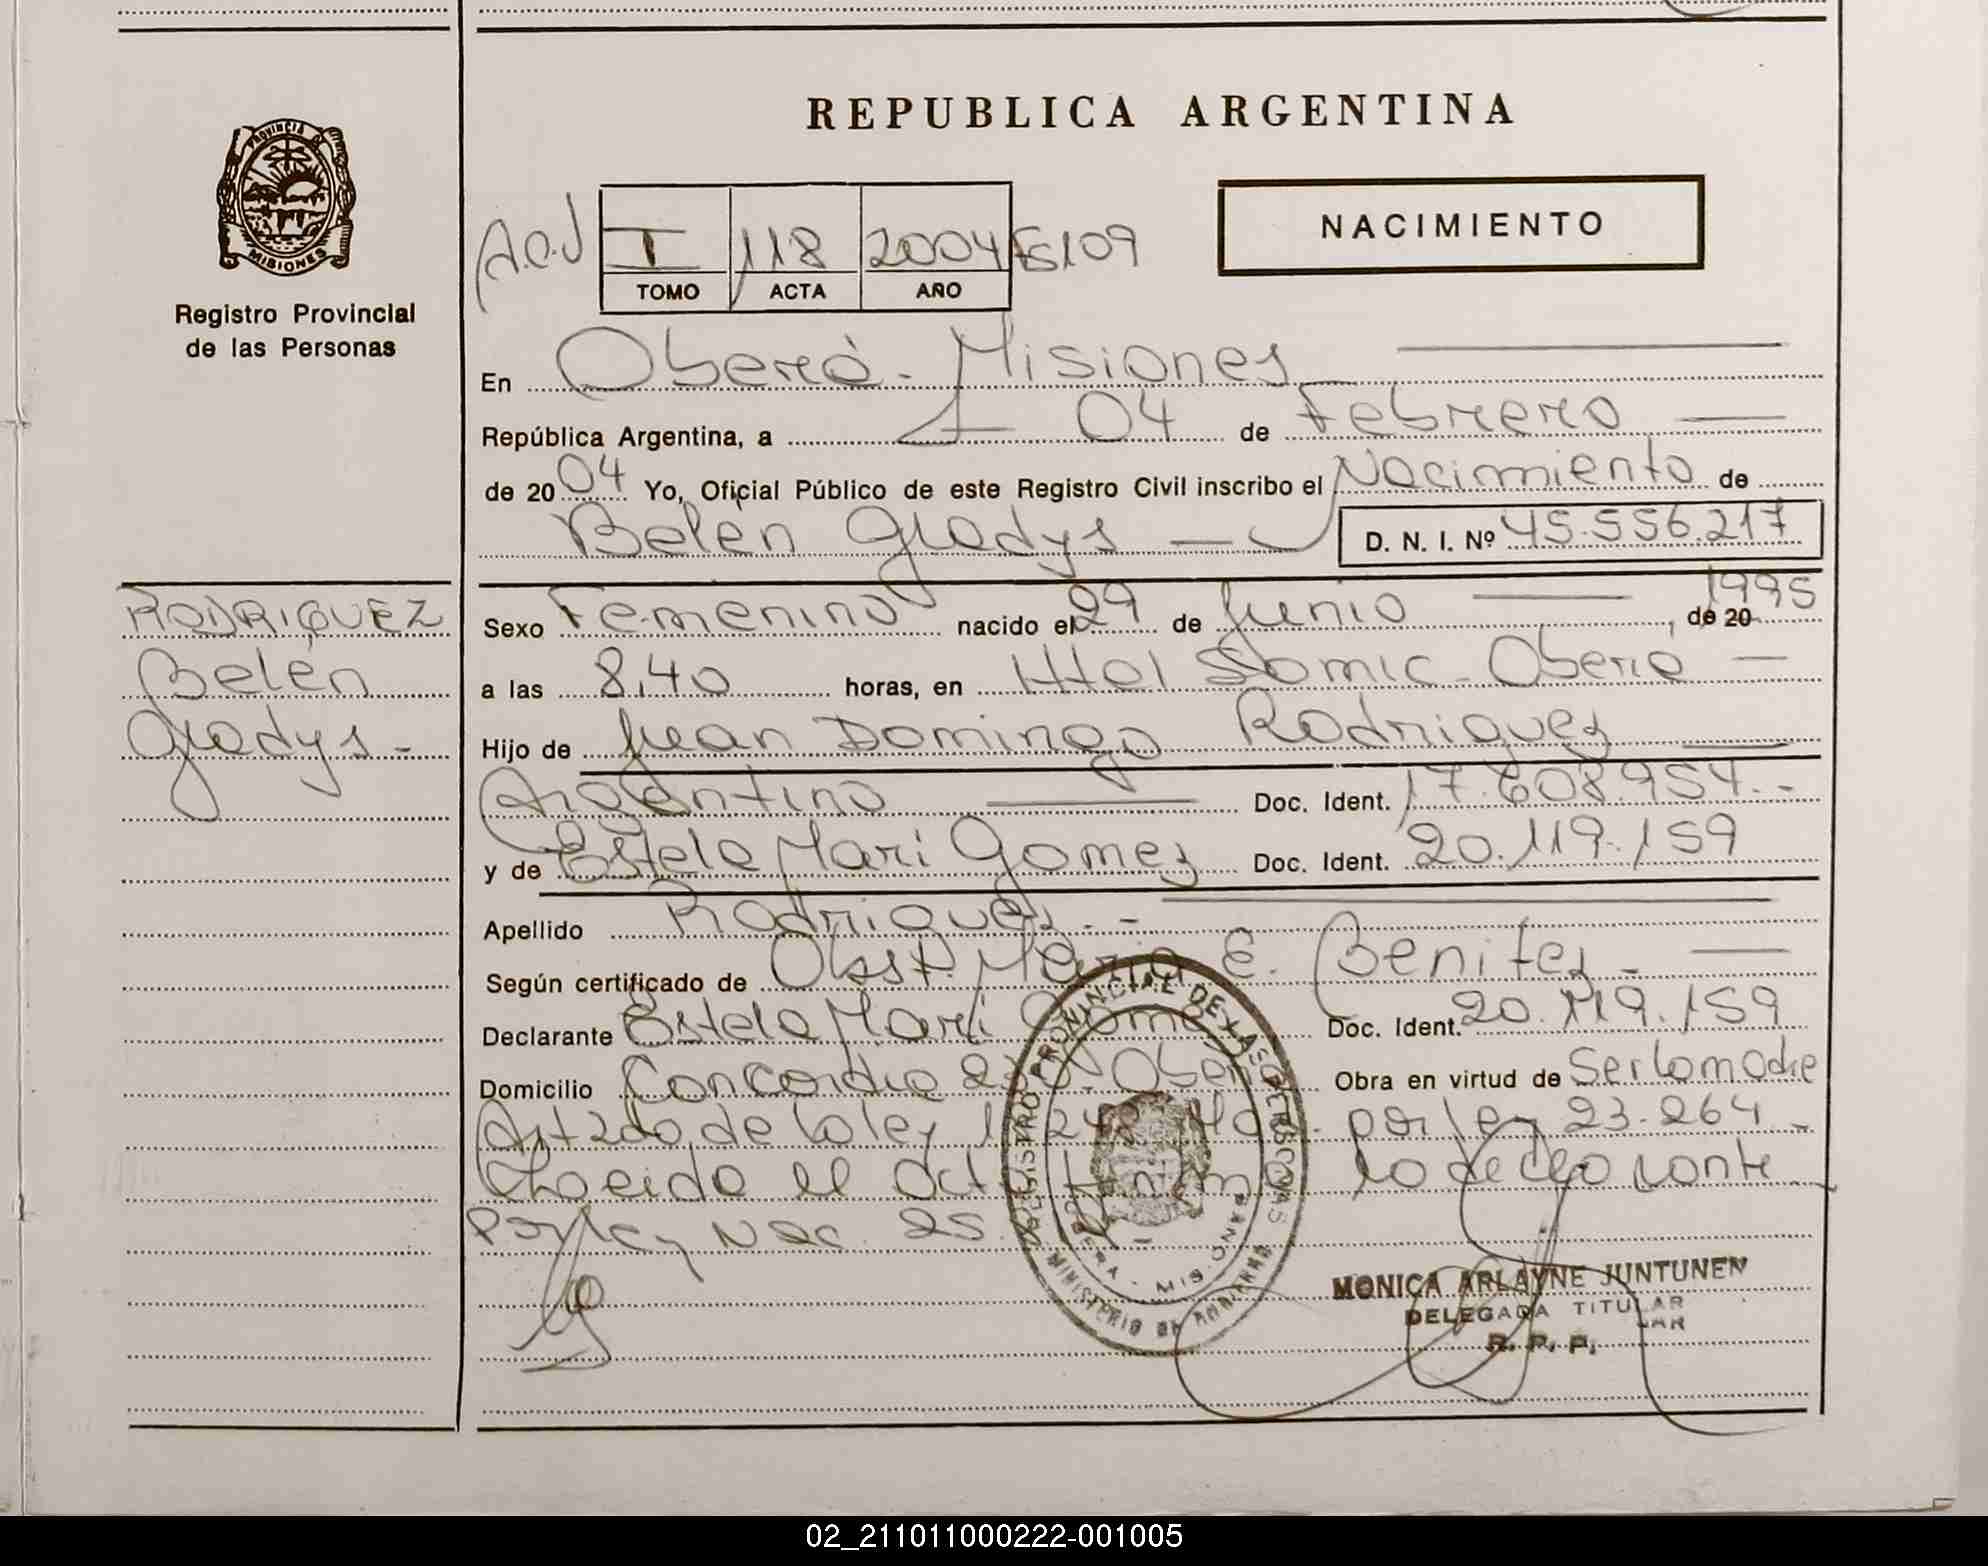 REPUBLICA ARGENTINA
PROVINCIA
MISIONES
Registro Provincial
de las Personas
NACIMIENTO
I 118 2004 Fs 109
TOMO ACTA AÑO
En Oberá - Misiones
República Argentina, a 04 de Febrero
de 20 04 Yo, Oficial Público de este Registro Civil inscribo el Nacimiento de
Belén Gladys D. N. I. Nº 45.556.217
RODRIGUEZ
Belén
Gladys -
Sexo Femenino nacido el 29 de Junio de 20 1995
a las 8,40 horas, en Htal Samic - Oberá
Hijo de Juan Domingo Rodriguez
Argentino Doc. Ident. 17.608.954.-
y de Estela Mari Gomez Doc. Ident. 20.119.159
Apellido Rodriguez.-
Según certificado de Obst. Maria E. Benitez -
Declarante Estela Mari Gomez Doc. Ident. 20.119.159
Domicilio Concordia Oberá Obra en virtud de Ser la madre
Art 2do, de la ley por ley 23.264 -
el Act lo de
Por ley Nac. 25.
REGISTRO PROVINCIAL DE LAS PERSONAS
MINISTERIO DE
MONICA ARLAYNE JUNTUNEN
DELEGADA TITULAR
R. P. P.
02_211011000222-001005